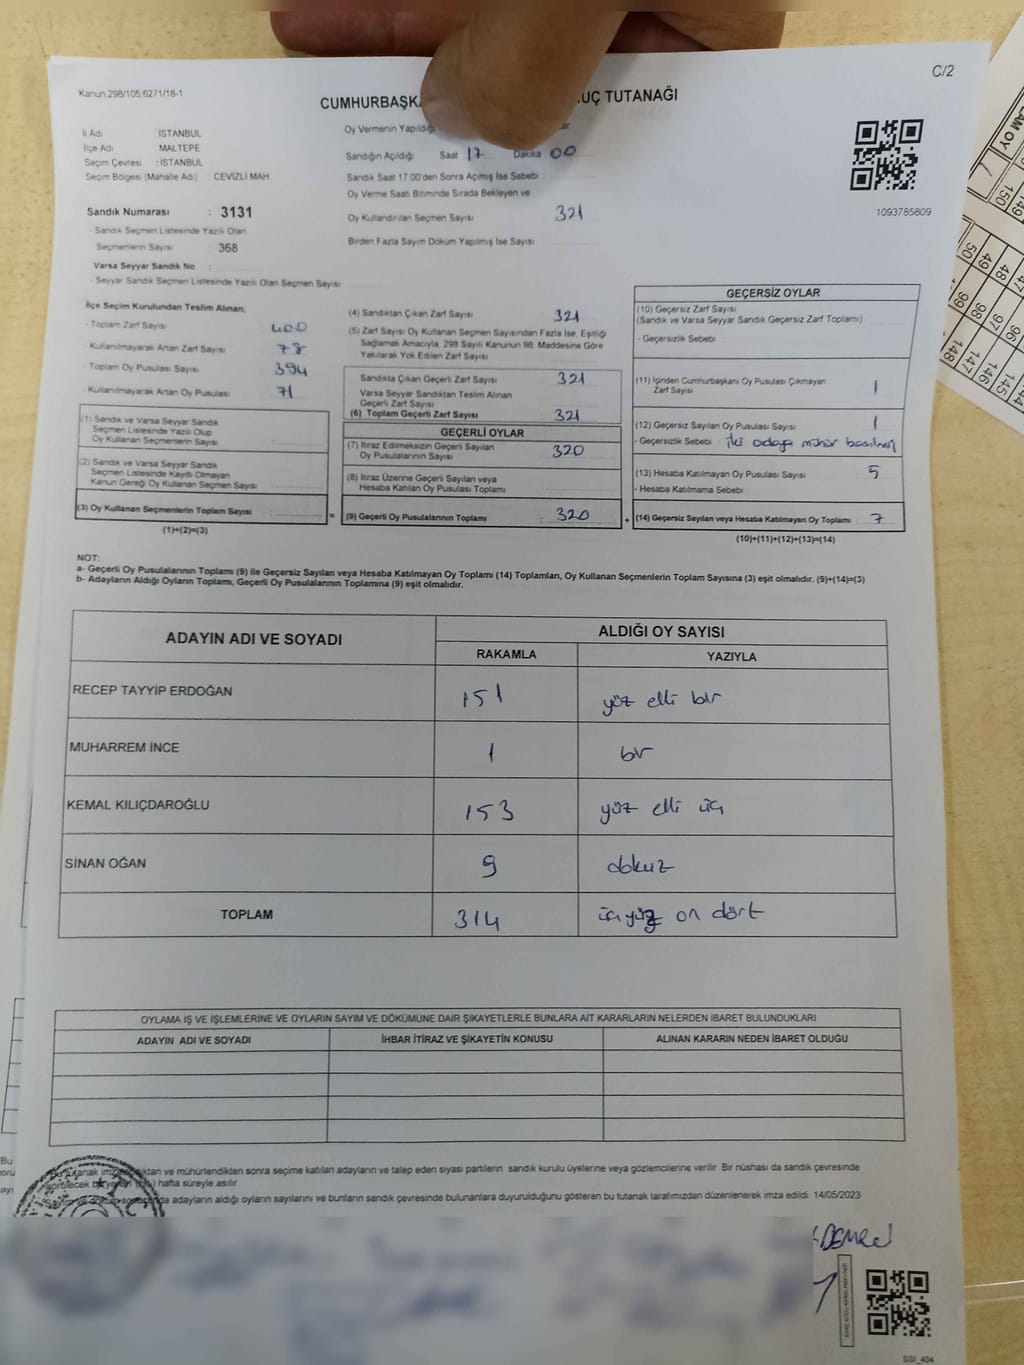 C/2
Kanun.298/105;6271/18-1
CUMHURBAŞKA UÇ TUTANAĞI
İl Adı : İSTANBUL
İlçe Adı : MALTEPE
Seçim Çevresi : İSTANBUL
Seçim Bölgesi (Mahalle Adı) : CEVİZLİ MAH
Sandık Numarası : 3131
- Sandık Seçmen Listesinde Yazılı Olan
Seçmenlerin Sayısı : 368
Varsa Seyyar Sandık No :
- Seyyar Sandık Seçmen Listesinde Yazılı Olan Seçmen Sayısı :
Oy Vermenin Yapıldığı
Sandığın Açıldığı Saat 17 Dakika : 00
Sandık Saat 17:00'den Sonra Açımış İse Sebebi
Oy Verme Saati Bitiminde Sırada Bekleyen ve
Oy Kullandırılan Seçmen Sayısı 321
Birden Fazla Sayım Döküm Yapılmış İse Sayısı
1093785809
İlçe Seçim Kurulundan Teslim Alınan;
- Toplam Zarf Sayısı : 400
- Kullanılmayarak Artan Zarf Sayısı : 78
- Toplam Oy Pusulası Sayısı : 394
- Kullanılmayarak Artan Oy Pusulası : 71
(1) Sandık ve Varsa Seyyar Sandık
Seçmen Listesinde Yazılı Olup
Oy Kullanan Seçmenlerin Sayısı :
(2) Sandık ve Varsa Seyyar Sandık
Seçmen Listesinde Kayıtlı Olmayan
Kanun Gereği Oy Kullanan Seçmen Sayısı :
(3) Oy Kullanan Seçmenlerin Toplam Sayısı :
(1)+(2)=(3)
(4) Sandıktan Çıkan Zarf Sayısı : 321
(5) Zarf Sayısı Oy Kullanan Seçmen Sayısından Fazla İse, Eşitliği
Sağlamak Amacıyla, 298 Sayılı Kanunun 98. Maddesine Göre
Yakılarak Yok Edilen Zarf Sayısı
Sandıkta Çıkan Geçerli Zarf Sayısı : 321
Varsa Seyyar Sandıktan Teslim Alınan
Geçerli Zarf Sayısı
(6) Toplam Geçerli Zarf Sayısı : 321
GEÇERLİ OYLAR
(7) İtiraz Edilmeksizin Geçerli Sayılan
Oy Pusulalarının Sayısı : 320
(8) İtiraz Üzerine Geçerli Sayılan veya
Hesaba Katılan Oy Pusulası Toplamı :
= (9) Geçerli Oy Pusulalarının Toplamı : 320
GEÇERSİZ OYLAR
(10) Geçersiz Zarf Sayısı
(Sandık ve Varsa Seyyar Sandık Geçersiz Zarf Toplamı)
- Geçersizlik Sebebi :
(11) İçinden Cumhurbaşkanı Oy Pusulası Çıkmayan
Zarf Sayısı : 1
(12) Geçersiz Sayılan Oy Pusulası Sayısı : 1
- Geçersizlik Sebebi : iki adaya mühür basılmış
(13) Hesaba Katılmayan Oy Pusulası Sayısı : 5
- Hesaba Katılmama Sebebi :
+ (14) Geçersiz Sayılan veya Hesaba Katılmayan Oy Toplamı : 7
(10)+(11)+(12)+(13)=(14)
NOT:
a- Geçerli Oy Pusulalarının Toplamı (9) ile Geçersiz Sayılan veya Hesaba Katılmayan Oy Toplamı (14) Toplamları, Oy Kullanan Seçmenlerin Toplam Sayısına (3) eşit olmalıdır. (9)+(14)=(3)
b- Adayların Aldığı Oyların Toplamı, Geçerli Oy Pusulalarının Toplamına (9) eşit olmalıdır.
ADAYIN ADI VE SOYADI ALDIĞI OY SAYISI
RAKAMLA YAZIYLA
RECEP TAYYİP ERDOĞAN 151 yüz elli bir
MUHARREM İNCE 1 bir
KEMAL KILIÇDAROĞLU 153 yüz elli üç
SİNAN OĞAN 9 dokuz
TOPLAM 314 üçyüz on dört
OYLAMA İŞ VE İŞLEMLERİNE VE OYLARIN SAYIM VE DÖKÜMÜNE DAİR ŞİKAYETLERLE BUNLARA AİT KARARLARIN NELERDEN İBARET BULUNDUKLARI
ADAYIN ADI VE SOYADI İHBAR İTİRAZ VE ŞİKAYETİN KONUSU ALINAN KARARIN NEDEN İBARET OLDUĞU
Bu tutanak imzalandıktan ve mühürlendikten sonra seçime katılan adayların ve talep eden siyasi partilerin sandık kurulu üyelerine veya gözlemcilerine verilir. Bir nüshası da sandık çevresinde
görülecek bir yere (bir) hafta süreyle asılır.
adayların aldığı oyların sayılarını ve bunların sandık çevresinde bulunanlara duyurulduğunu gösteren bu tutanak tarafımızdan düzenlenerek imza edildi. 14/05/2023
SSİ_404